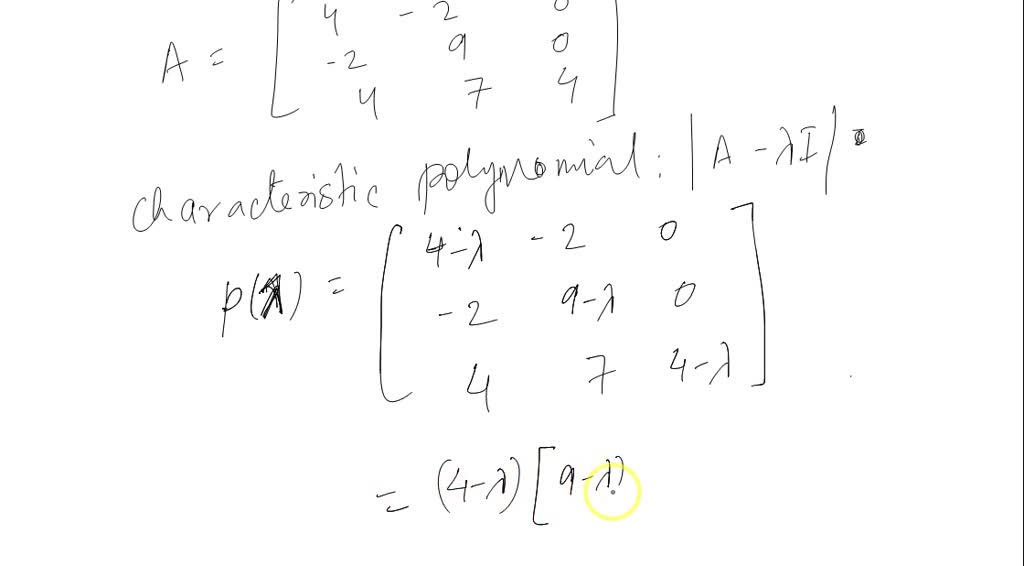 4 -2 0
A = -2 9 0
4 7 4
characteristic polynomial: |A - λI|
p(λ) = 4-λ -2 0
-2 9-λ 0
4 7 4-λ
= (4-λ) [9-λ)